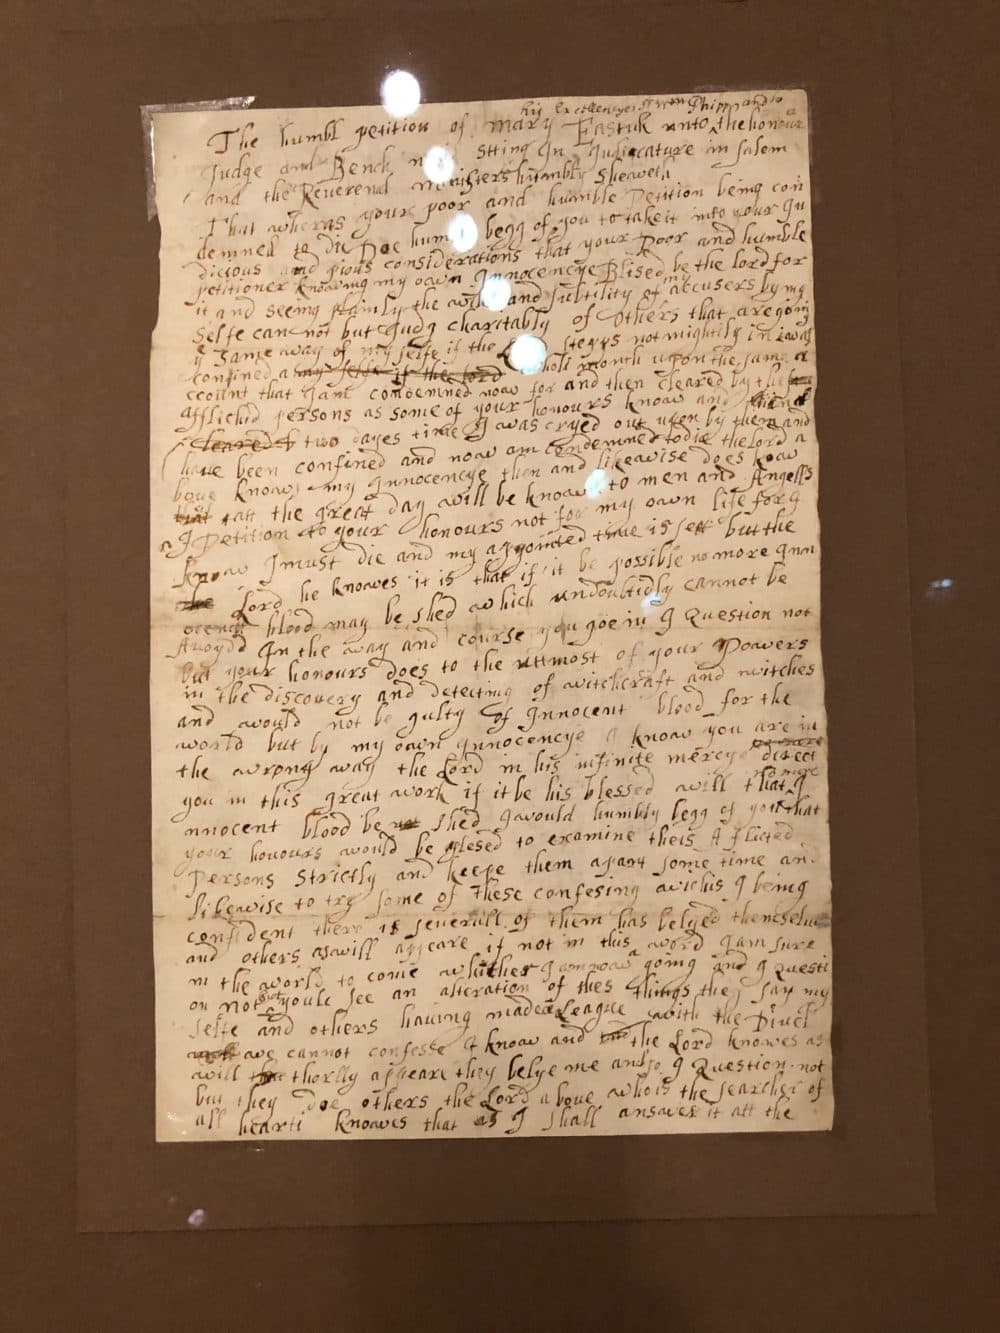 his Excellencyes Srr Wm Phipps and to
The humbl petition of mary Eastick unto the honour
Judge and Bench now Stting In Judicature in Salem
and the Reverend ministers humbly Sheweth
That wheras your poor and humble Petition being con
demned to die Doe humbly begg of you to take it into your Ju
dicious and pious considerations that your Poor and humble
petitioner knowing my own Innocencye Blised be the lord for
it and seeing plainly the wiles and subtility of my accusers by my
Selfe can not but Judg charitably of others that are going
ye same way of my selfe if the Lord stepps not mightily in i was
confined a my selfe if the Lord whole month upon the same a
ccount that I am condemned now for and then cleared by the
afflicted persons as some of your honours know and
cleared of two dayes time I was cryed out upon by them and
have been confined and now am condemned to die the lord a
bove knows my Innocencye then and likewise does know
that att the great day will be known to men and Angells
I Petition to your honours not for my own life for I
know I must die and my appointed time is sett but the
the Lord he knowes it is that if it be possible no more Inn
ocent blood may be shed which undoubtidly cannot be
Avoydd In the way and course you goe in I Question not
but your honours does to the uttmost of your Powers
in the discovery and detecting of witchcraft and witches
and would not be gulty of Innocent blood for the
world but by my own Innocencye I know you are in
the wrong way the Lord in his infinite mercye direct
you in this great work if it be his blessed will that no more I
nnocent blood be shed I would humbly begg of you that
your honours would be plesed to examine theis Aflicted
Persons strictly and keepe them apart some time and
likewise to try some of these confesing wichis I being
confident there is severall of them has belyed themselves
and others as will appeare if not in this world I am sure
in the world to come whither I am now agoing and I Questi
on not but youle see an alteration of thes things they say my
selfe and others having made a League with the Divel
we cannot confesse I know and the Lord knowes as
will thorlly appeare they belye me and so I Question not
but they doe others the Lord above who is the searcher of
all hearts knowes that as I shall answer it att the